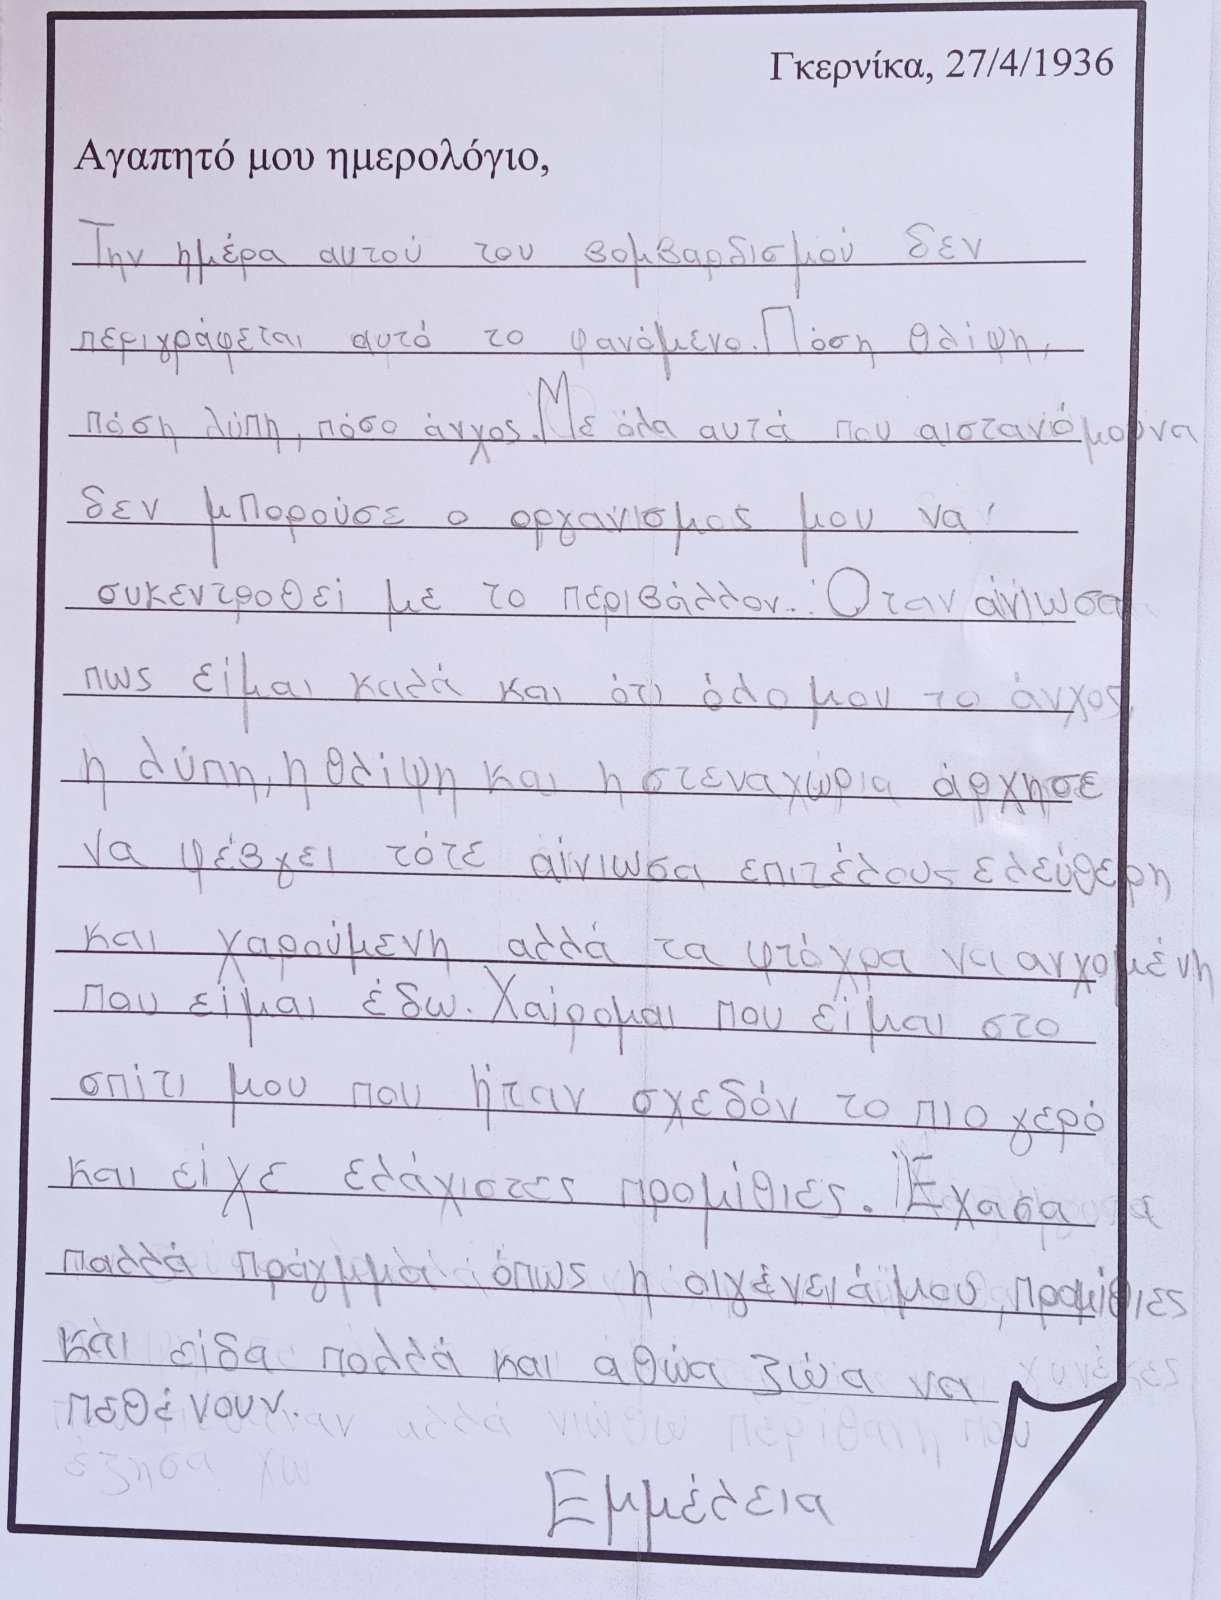 Γκερνίκα, 27/4/1936
Αγαπητό μου ημερολόγιο,
Την ημέρα αυτού του βομβαρδισμού δεν
περιγράφεται αυτό το φανόμενο. Πόση θλίψη,
πόση λύπη, πόσο άνχος. Με όλα αυτά που αιστανόμουνα
δεν μπορούσε ο οργανισμος μου να
συκεντροθεί με το περιβάλλον. Όταν αίνιωσα
πως είμαι καλά και ότι όλο μου το άνχος,
η λύπη, η θλίψη και η στεναχώρια άρχησε
να φέβγει τότε αίνιωσα επιτέλους ελεύθερη
και χαρούμενη αλλά τα φτόχρα να ανχομένη
που είμαι έδω. Χαίρομαι που είμαι στο
σπίτι μου που ήταν σχεδόν το πιο γερό
και είχε ελάχιστες προμίθιες. Έχασα
παλλά πράγμματ όπως η οιγένειά μου, προμίθιες
και είδα πολλά και αθώα ζώα να
πεθένουν.
Εμμέλεια